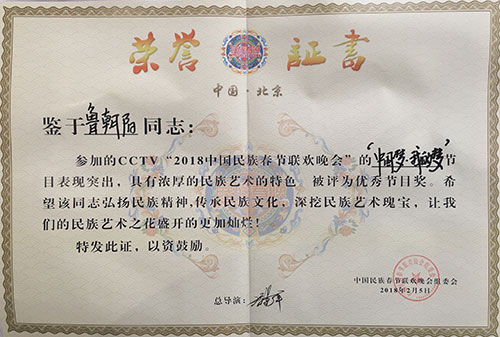 荣誉 证书
中国·北京
鉴于鲁朝阳同志:
参加的CCTV“2018中国民族春节联欢晚会”的“中国梦·我的梦”节
目表现突出，具有浓厚的民族艺术的特色，被评为优秀节目奖。希
望该同志弘扬民族精神,传承民族文化，深挖民族艺术瑰宝，让我
们的民族艺术之花盛开的更加灿烂!
特发此证，以资鼓励。
中国民族春节联欢晚会组委会
2018年2月5日
总导演: